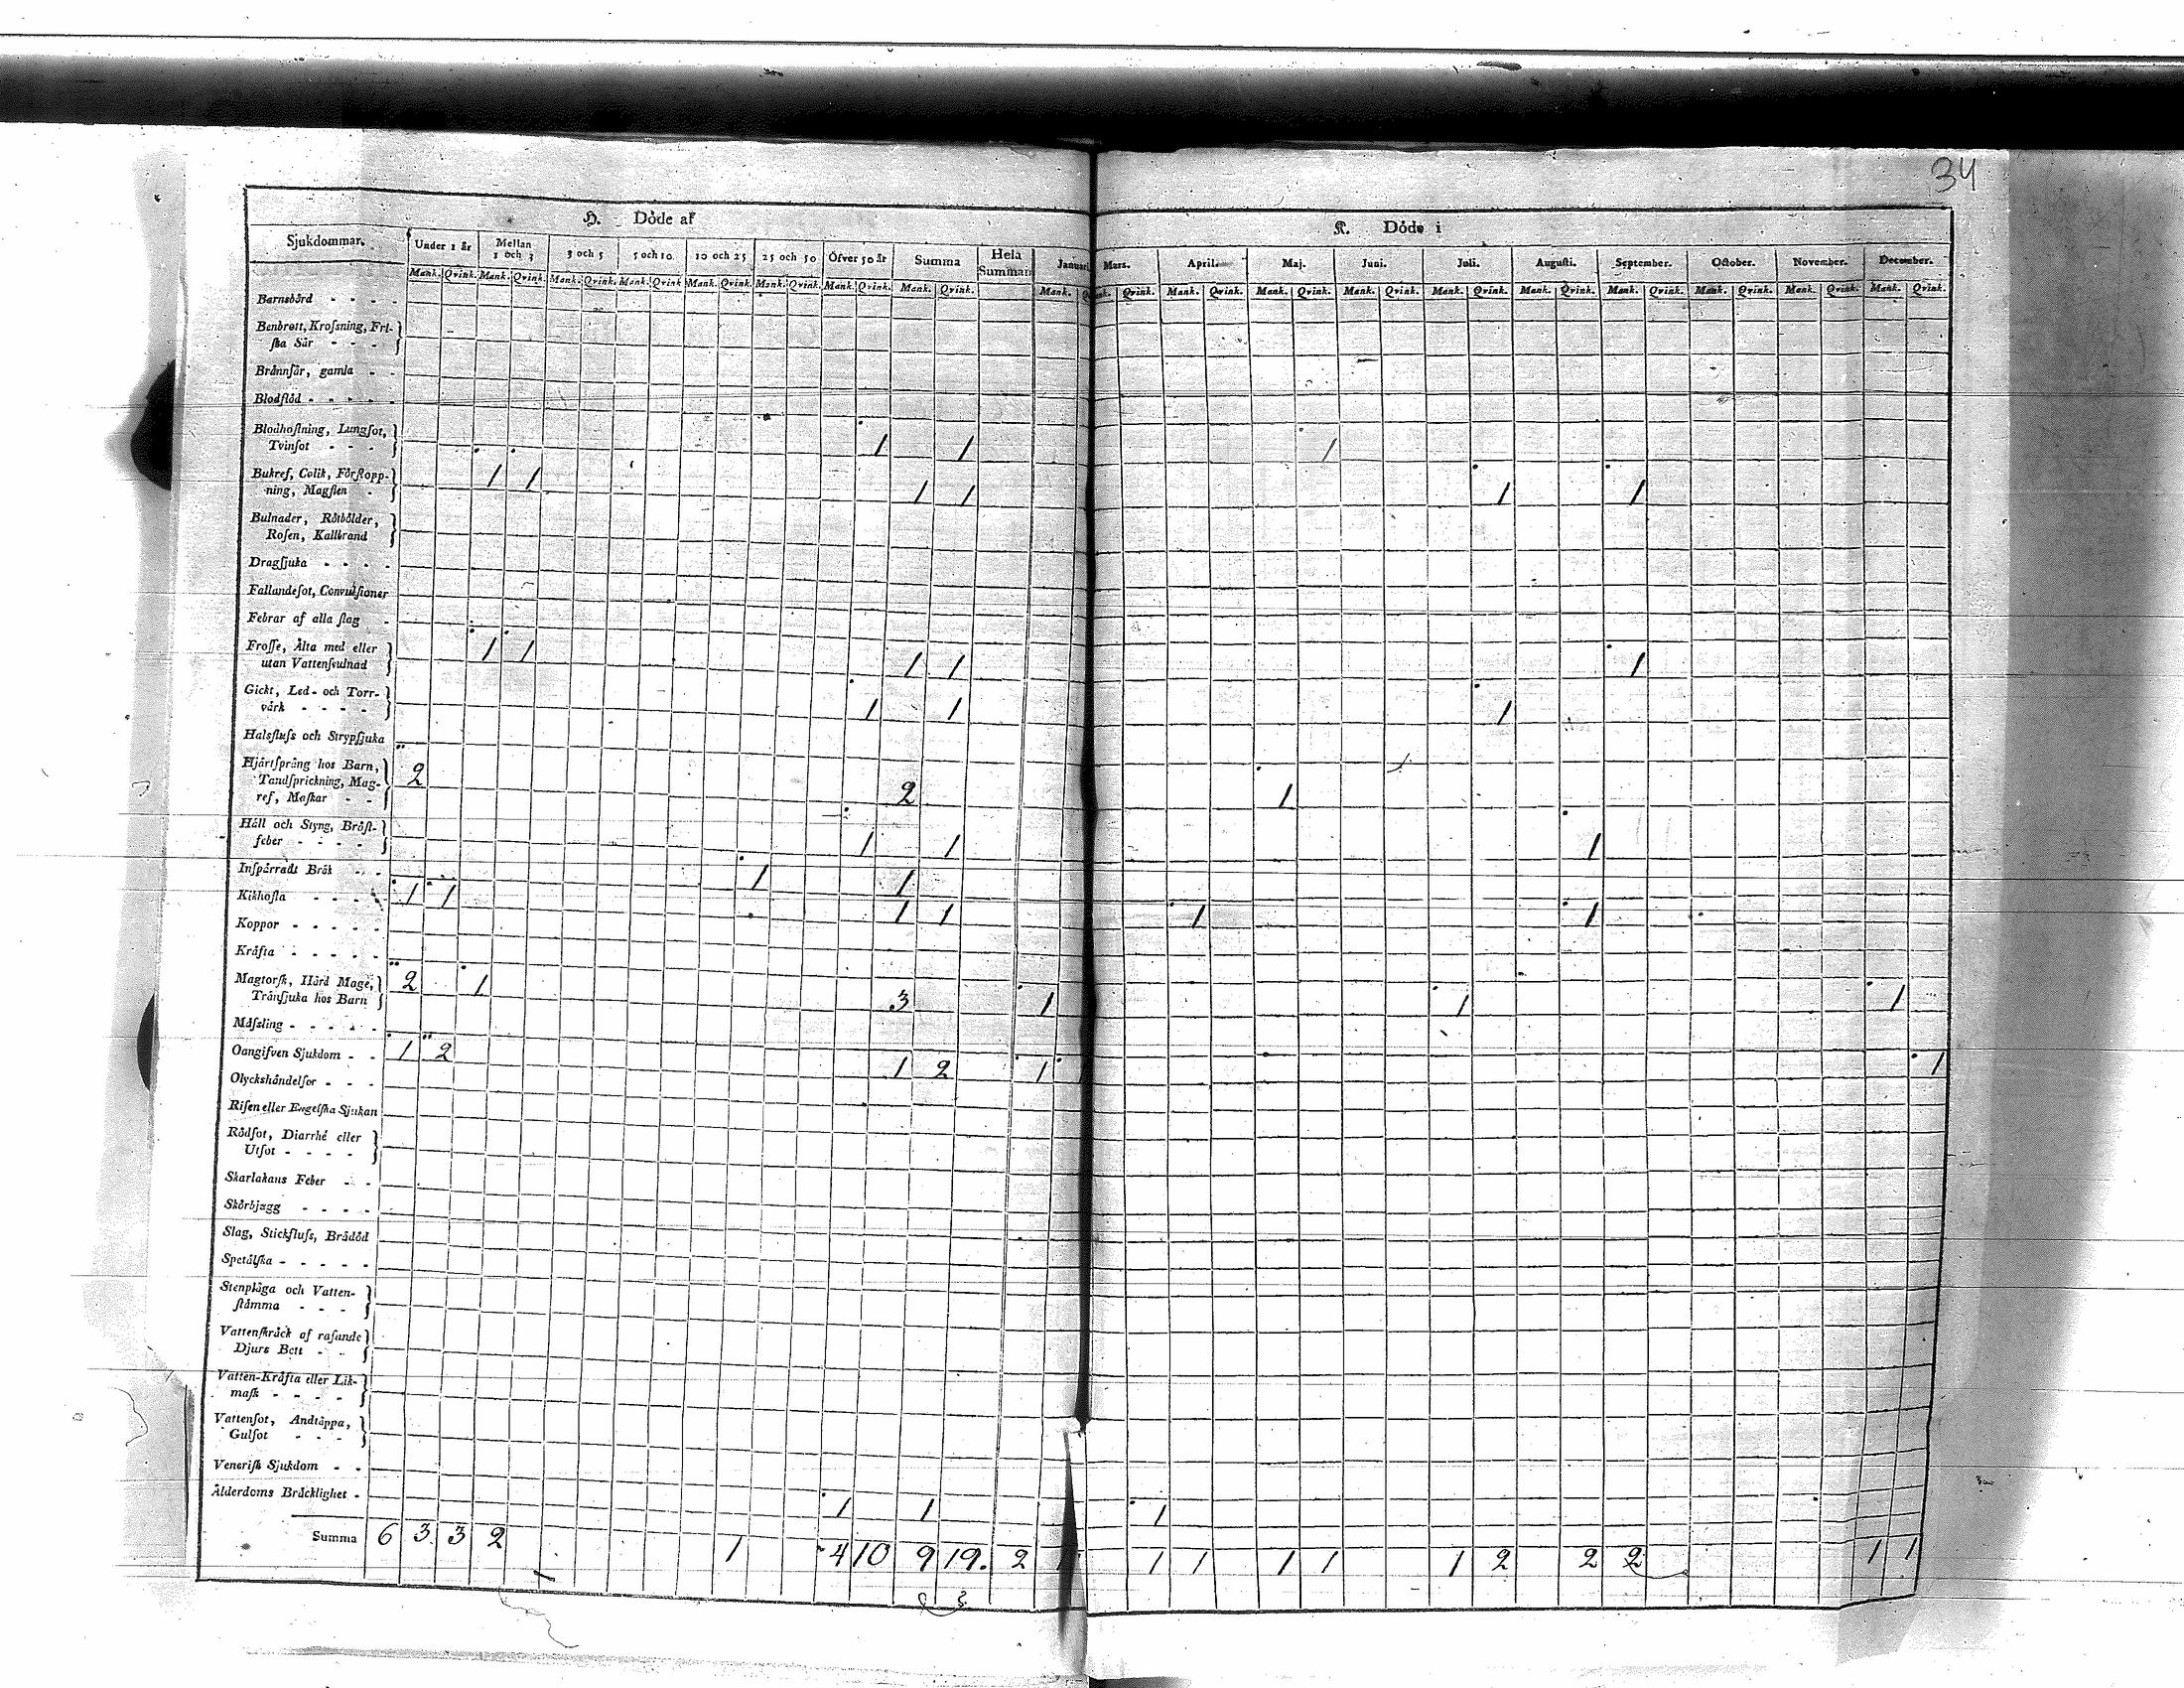 34
H. Döde af
K. Döde i
Sjukdommar. Under 1 år Mellan 1 och 3 3 och 5 5 och 10 10 och 25 25 och 50 Öfver 50 år Summa Hela Summan Januari Mars. April. Maj. Juni. Juli. Augusti. September. October. November. December.
Mank. Qvink. Mank. Qvink. Mank. Qvink. Mank. Qvink. Mank. Qvink. Mank. Qvink. Mank. Qvink. Mank. Qvink. Mank. Qvink. Mank. Qvink. Mank. Qvink. Mank. Qvink. Mank. Qvink. Mank. Qvink. Mank. Qvink. Mank. Qvink. Mank. Qvink. Mank. Qvink.
Barnsbörd
Benbrott, Krofsning, Fri-
ska Sår
Brännsår, gamla
Blodflöd
Blodhostning, Lungsot,
Tvinsot 1 1 1
Bukref, Colik, Förstopp-
ning, Magsten 1 1 1 1 1 1
Bulnader, Rötbölder,
Rosen, Kallbrand
Dragsjuka
Fallandesot, Convulsioner
Febrar af alla slag
Frosse, Älta med eller
utan Vattensvulnad 1 1 1 1 1
Gickt, Led- och Torr-
värk 1 1 1
Halsflufs och Strypsjuka
Hjärtsprång hos Barn,
Tandsprickning, Mag-
ref, Maskar 2 2 1
Håll och Styng, Bröst-
feber 1 1 1
Inspärradt Bråk 1 1
Kikhosta 1 1 1 1 1 1
Koppor
Kräfta
Magtorsk, Hård Mage,
Tränsjuka hos Barn 2 1 3 1 1 1
Mäfsling
Oangifven Sjukdom 1 2 1 2 1 1
Olyckshändelser
Risen eller Engelska Sjukan
Rödsot, Diarrhé eller
Utsot
Skarlakans Feber
Skörbjugg
Slag, Stickflufs, Brådöd
Spetälska
Stenplåga och Vatten-
stämma
Vattenskräck af rasande
Djurs Bett
Vatten-Kräfta eller Lik-
mask
Vattensot, Andtäppa,
Gulsot
Venerisk Sjukdom
Ålderdoms Bräcklighet 1 1 1
Summa 6 3 3 2 1 4 10 9 19. 2 1 1 1 1 1 2 2 2 1 1